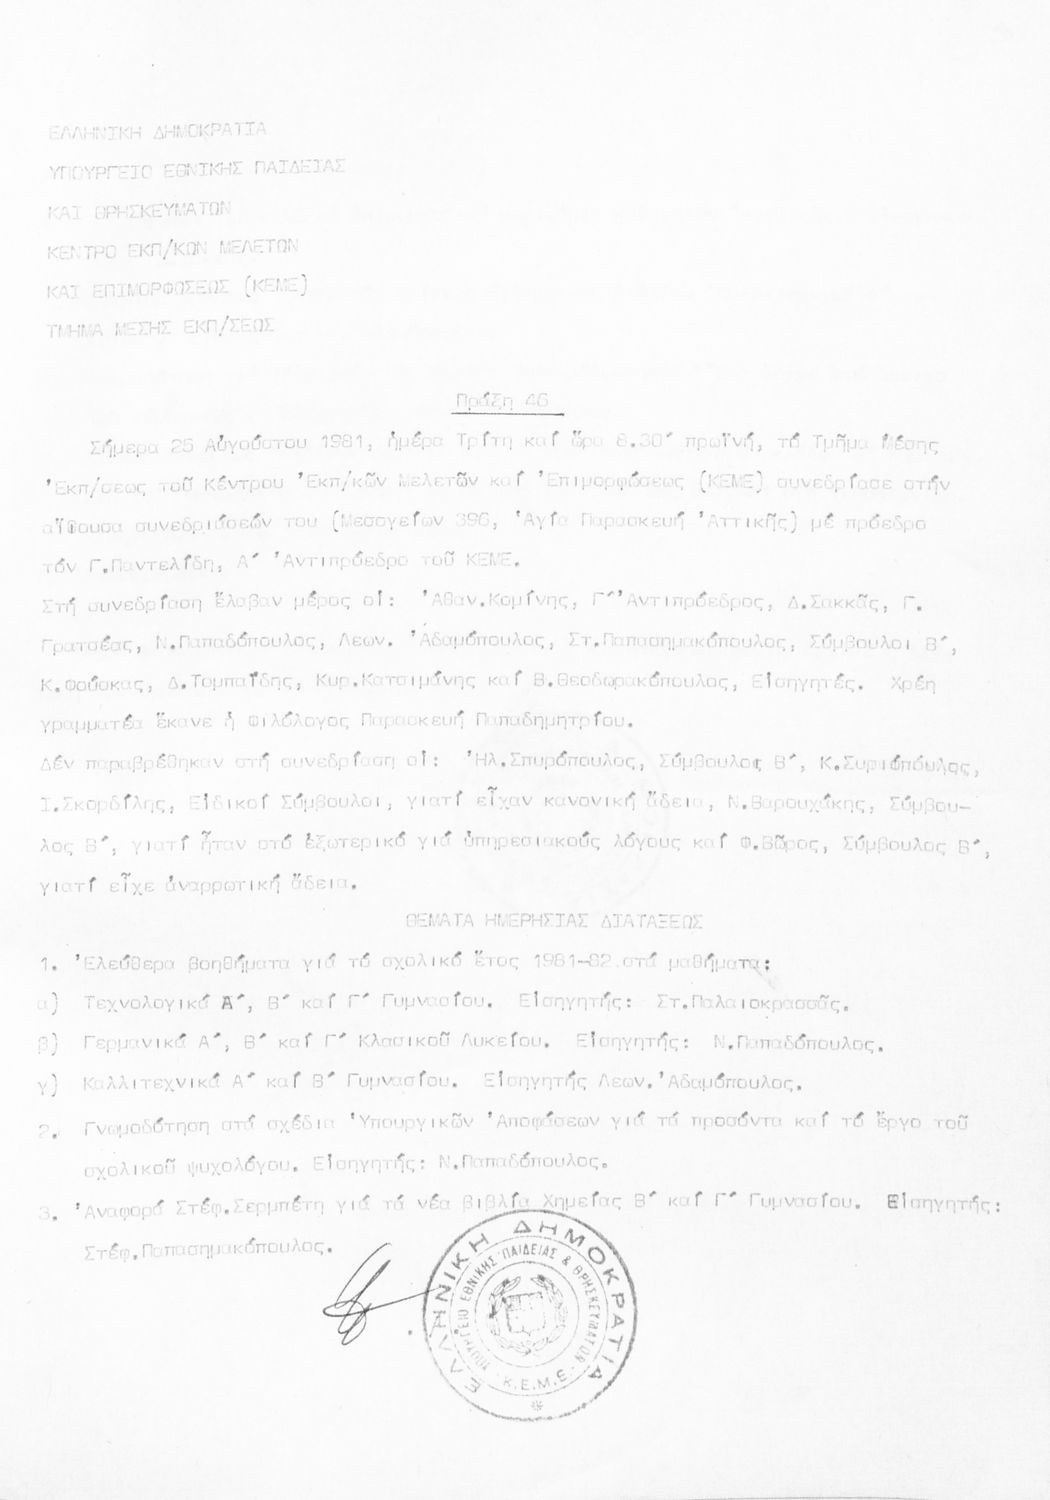 ΕΛΛΗΝΙΚΗ ΔΗΜΟΚΡΑΤΙΑ
ΥΠΟΥΡΓΕΙΟ ΕΘΝΙΚΗΣ ΠΑΙΔΕΙΑΣ
ΚΑΙ ΘΡΗΣΚΕΥΜΑΤΩΝ
ΚΕΝΤΡΟ ΕΚΠ/ΚΩΝ ΜΕΛΕΤΩΝ
ΚΑΙ ΕΠΙΜΟΡΦΩΣΕΩΣ (ΚΕΜΕ)
ΤΜΗΜΑ ΜΕΣΗΣ ΕΚΠ/ΣΕΩΣ
Πράξη 46
Σήμερα 25 Αὐγούστου 1981, ἡμέρα Τρίτη καί ὥρα 8.30´ πρωϊνή, τό Τμῆμα Μέσης
Ἐκπ/σεως τοῦ Κέντρου Ἐκπ/κῶν Μελετῶν καί Ἐπιμορφώσεως (ΚΕΜΕ) συνεδρίασε στήν
αἴθουσα συνεδριάσεών του (Μεσογείων 396, Ἁγία Παρασκευή Ἀττικῆς) μέ πρόεδρο
τόν Γ.Παντελίδη, Α´ Ἀντιπρόεδρο τοῦ ΚΕΜΕ.
Στή συνεδρίαση ἔλαβαν μέρος οἱ: Ἀθαν.Κομίνης, Γ´ Ἀντιπρόεδρος, Δ.Σακκᾶς, Γ.
Γρατσέας, Ν.Παπαδόπουλος, Λεων. Ἀδαμόπουλος, Στ.Παπασημακόπουλος, Σύμβουλοι Β´,
Κ.Φούσκας, Δ.Τομπαΐδης, Κυρ.Κατσιμάνης καί Β.Θεοδωρακόπουλος, Εἰσηγητές. Χρέη
γραμματέα ἔκανε ἡ Φιλόλογος Παρασκευή Παπαδημητρίου.
Δέν παραβρέθηκαν στή συνεδρίαση οἱ: Ἠλ.Σπυρόπουλος, Σύμβουλος Β´, Κ.
Ι.Σκορδίλης, Εἰδικοί Σύμβουλοι, γιατί εἶχαν κανονική ἄδεια, Ν.Βαρουχάκης, Σύμβου-
λος Β´, γιατί ἦταν στό ἐξωτερικό γιά ὑπηρεσιακούς λόγους καί Φ.Βῶρος, Σύμβουλος Β´,
γιατί εἶχε ἀναρρωτική ἄδεια.
ΘΕΜΑΤΑ ΗΜΕΡΗΣΙΑΣ ΔΙΑΤΑΞΕΩΣ
1. Ἐλεύθερα βοηθήματα γιά τό σχολικό ἔτος 1981-82 στά μαθήματα:
α) Τεχνολογικά Α´, Β´ καί Γ´ Γυμνασίου. Εἰσηγητής: Στ.Παλαιοκρασσᾶς.
β) Γερμανικά Α´, Β´ καί Γ´ Κλασικοῦ Λυκείου. Εἰσηγητής: Ν.Παπαδόπουλος.
γ) Καλλιτεχνικά Α´ καί Β´ Γυμνασίου. Εἰσηγητής Λεων.Ἀδαμόπουλος.
2. Γνωμοδότηση στά σχέδια Ὑπουργικῶν Ἀποφάσεων γιά τά προσόντα καί τό ἔργο τοῦ
σχολικοῦ ψυχολόγου. Εἰσηγητής: Ν.Παπαδόπουλος.
3. Ἀναφορά Στέφ.Σερμπέτη γιά τά νέα βιβλία Χημείας Β´ καί Γ´ Γυμνασίου. Εἰσηγητής:
Στέφ.Παπασημακόπουλος.
ΕΛΛΗΝΙΚΗ ΔΗΜΟΚΡΑΤΙΑ
ΥΠΟΥΡΓΕΙΟ ΕΘΝΙΚΗΣ ΠΑΙΔΕΙΑΣ & ΘΡΗΣΚΕΥΜΑΤΩΝ
Κ.Ε.Μ.Ε.